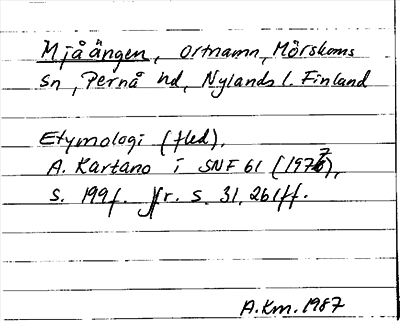 Mjåängen, ortnamn, Mörskoms
sn, Pernå hd, Nylands l. Finland
Etymologi (fled),
A. Kartano i SNF 61 (1977),
s. 199f. Jfr. s. 31, 261ff.
A.Km. 1987